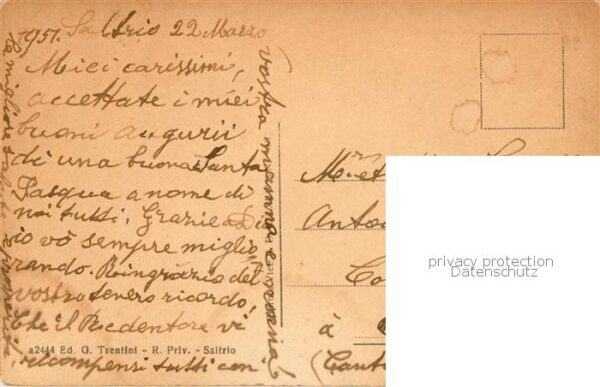 1951. Saltrio 22 Marzo
Miei carissimi,
accettate i miei
buoni augurii
di una buona Santa
Pasqua a nome di
noi tutti, Grazie a Dio
io vò sempre miglio,
rando. Ringrazio del
vostro tenero ricordo,
Che il Redentore vi
a2444 Ed. G. Trentini - R. Priv. - Saltrio
ricompensi tutti con
la migliore salute e prosperità.
vostra mamma e nonna
Anto
Co
à
(Cant
privacy protection
Datenschutz